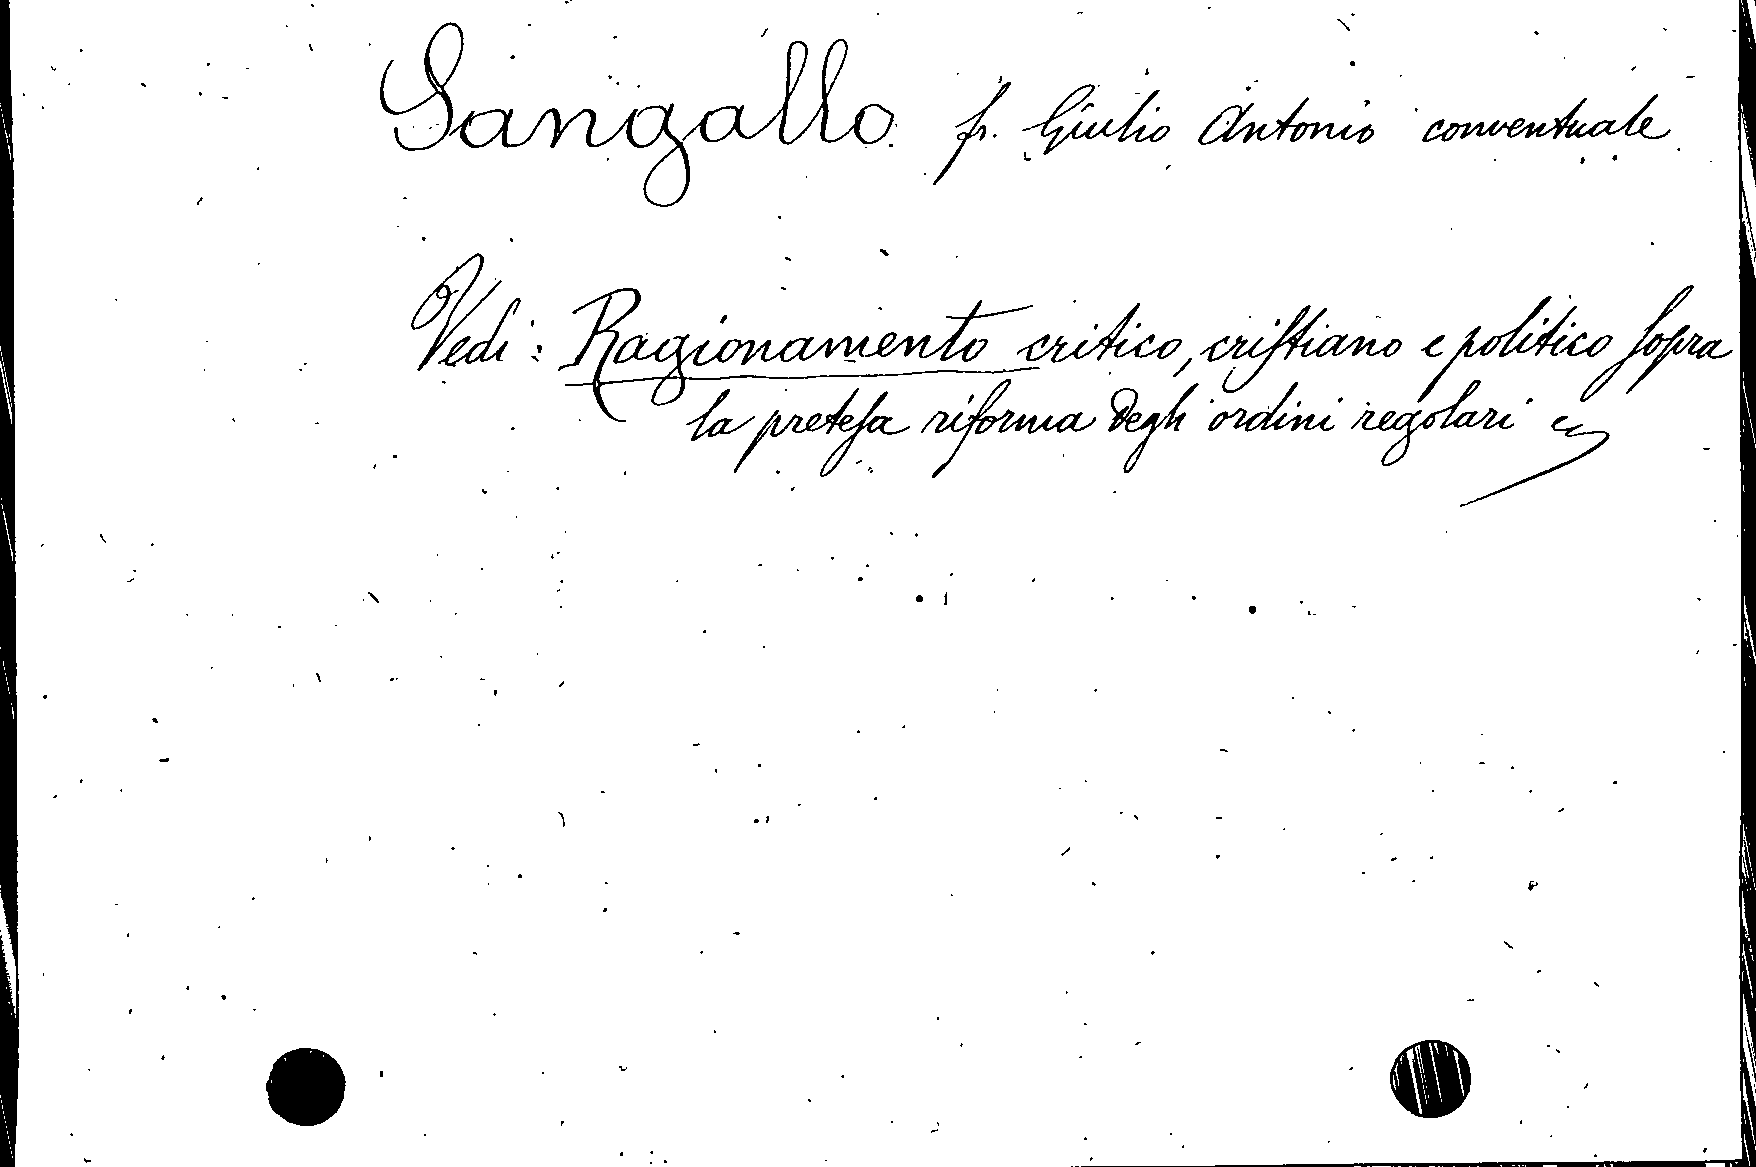 Sangallo fr. Giulio Antonio conventuale
Vedi: Ragionamento critico, criſtiano e politico ſopra
la preteſa riforma degli ordini regolari